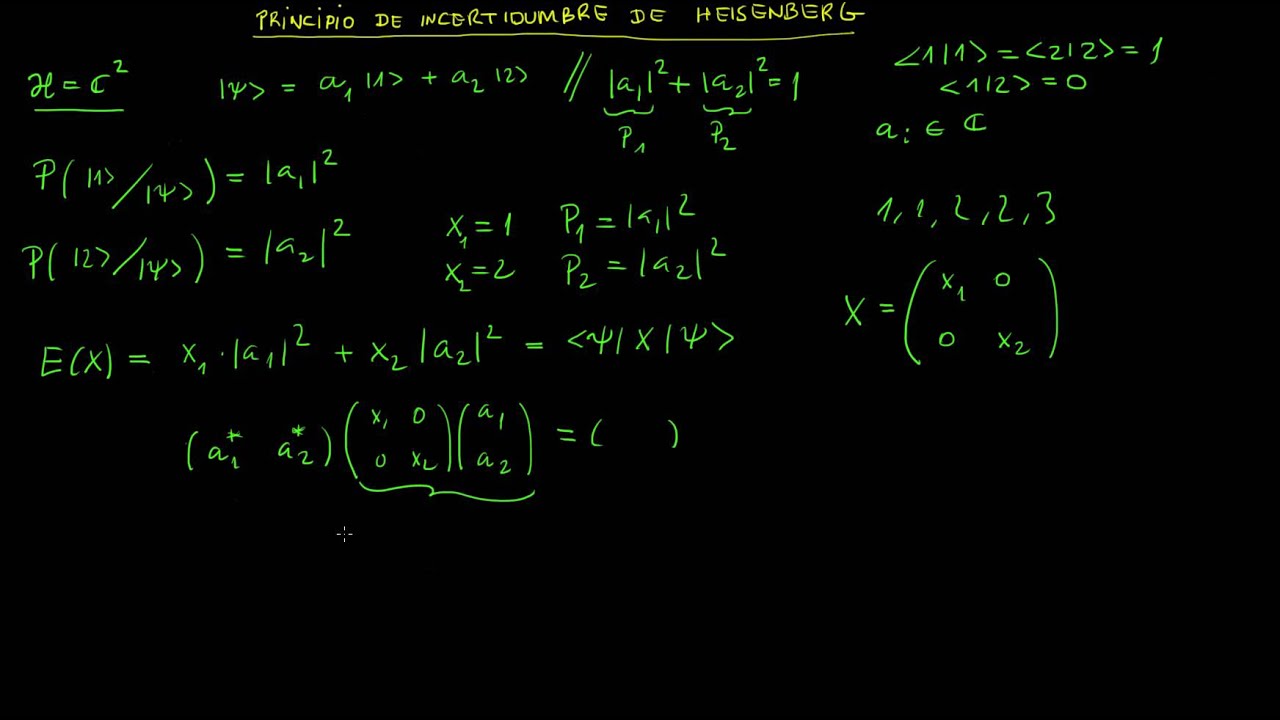 PRINCIPIO DE INCERTIDUMBRE DE HEISENBERG
ℋ = ℂ²
|ψ> = a₁ |1> + a₂ |2> // |a₁|² + |a₂|² = 1
P₁ P₂
<1|1> = <2|2> = 1
<1|2> = 0
aᵢ ∈ ℂ
P( |1> / |ψ> ) = |a₁|²
P( |2> / |ψ> ) = |a₂|²
x₁ = 1 P₁ = |a₁|²
x₂ = 2 P₂ = |a₂|²
1, 1, 2, 2, 3
X = ( x₁ 0
0 x₂ )
E(X) = x₁ · |a₁|² + x₂ |a₂|² = <ψ| X |ψ>
( a₁* a₂* ) ( x₁ 0 ) ( a₁ ) = ( )
( 0 x₂ ) ( a₂ )